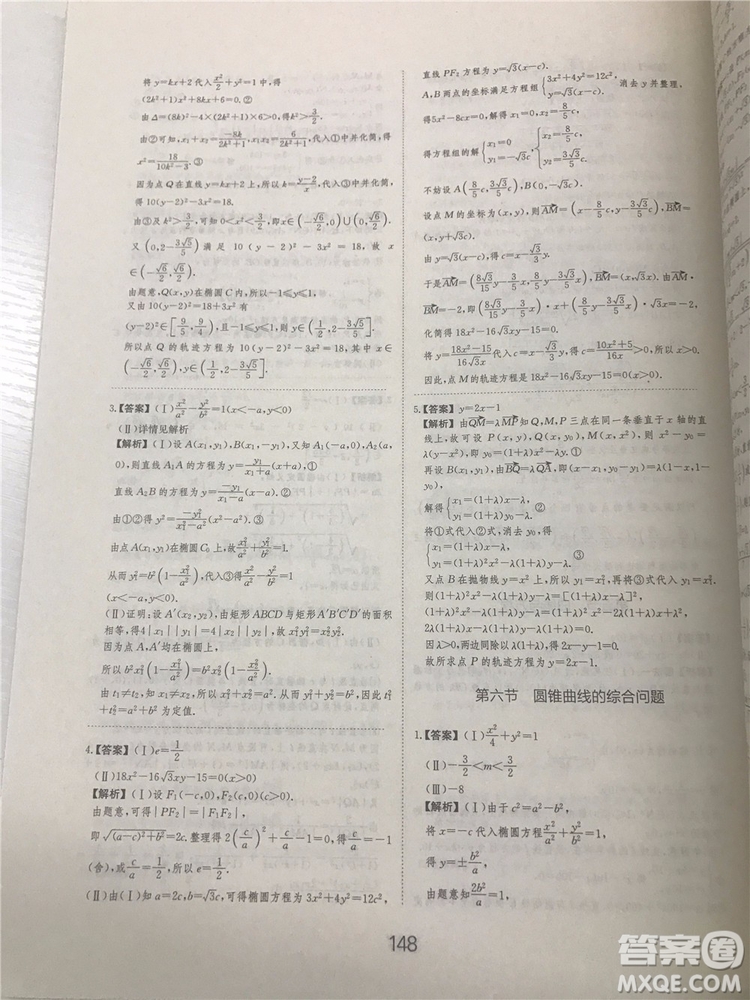 将 y=kx+2 代入 x²/2+y²=1 中,得
(2k²+1)x²+8kx+6=0.②
由 Δ=(8k)²-4×(2k²+1)×6>0,得 k²>3/2.
由②可知,x₁+x₂=-8k/(2k²+1),x₁x₂=6/(2k²+1),代入①中并化简,得
x²=18/(10k²-3).③
因为点 Q 在直线 y=kx+2 上,所以 k=(y-2)/x,代入③中并化简,
得 10(y-2)²-3x²=18.
由③及 k²>3/2,可知 0<x²<3/2,即 x∈(-√6/2,0)∪(0,√6/2).
又 (0,2-3√5/5) 满足 10(y-2)²-3x²=18,故 x∈
(-√6/2,√6/2).
由题意,Q(x,y)在椭圆 C 内,所以-1≤y≤1,
又由 10(y-2)²=18+3x² 有
(y-2)²∈[9/5,9/4),且-1≤y≤1,则 y∈(1/2,2-3√5/5].
所以点 Q 的轨迹方程为 10(y-2)²-3x²=18,其中 x∈
(-√6/2,√6/2),y∈(1/2,2-3√5/5].
3.【答案】(Ⅰ)x²/a²-y²/b²=1(x<-a,y<0)
(Ⅱ)详情见解析
【解析】(Ⅰ)设 A(x₁,y₁),B(x₁,-y₁),又知 A₁(-a,0),A₂(a,
0),则直线 A₁A 的方程为 y=y₁/(x₁+a)(x+a),①
直线 A₂B 的方程为 y=-y₁/(x₁-a)(x-a).②
由①②得 y²=-y₁²/(x₁²-a²)(x²-a²).③
由点 A(x₁,y₁)在椭圆 C₀ 上,故 x₁²/a²+y₁²/b²=1.
从而 y₁²=b²(1-x₁²/a²),代入③得 x²/a²-y²/b²=1
(x<-a,y<0).
(Ⅱ)证明:设 A′(x₂,y₂),由矩形 ABCD 与矩形 A′B′C′D′的面积
相等,得4|x₁||y₁|=4|x₂||y₂|,故 x₁²y₁²=x₂²y₂².
因为点 A,A′均在椭圆上,
所以 b²x₁²(1-x₁²/a²)=b²x₂²(1-x₂²/a²).
由 t₁≠t₂,知 x₁≠x₂,所以 x₁²+x₂²=a²,从而 y₁²+y₂²=b²,因此
t₁²+t₂²=a²+b² 为定值.
4.【答案】(Ⅰ)e=1/2
(Ⅱ)18x²-16√3xy-15=0(x>0)
【解析】(Ⅰ)设 F₁(-c,0),F₂(c,0)(c>0).
由题意,可得|PF₂|=|F₁F₂|,
即√((a-c)²+b²)=2c.整理得 2(c/a)²+c/a-1=0,得 c/a=-1
(舍),或 c/a=1/2,所以 e=1/2.
(Ⅱ)由(Ⅰ)知 a=2c,b=√3c,可得椭圆方程为 3x²+4y²=12c²,
直线 PF₂ 方程为 y=√3(x-c).
A,B 两点的坐标满足方程组{3x²+4y²=12c², y=√3(x-c). 消去 y 并整理,
得 5x²-8cx=0,解得 x₁=0,x₂=8/5c.
得方程组的解{x₁=0 y₁=-√3c,{x₂=8/5c, y₂=3√3/5c.
不妨设 A(8/5c,3√3/5c),B(0,-√3c),
设点 M 的坐标为(x,y),则AM=(x-8/5c,y-3√3/5c),BM=
(x,y+√3c),
由 y=√3(x-c),得 c=x-√3/3y.
于是AM=(8√3/15y-3/5x,8/5y-3√3/5x),BM=(x,√3x).由AM·
BM=-2,即(8√3/15y-3/5x)·x+(8/5y-3√3/5x)·√3x=-2,
化简得 18x²-16√3xy-15=0.
将 y=(18x²-15)/(16√3x)代入 c=x-√3/3y,得 c=(10x²+5)/(16x)>0,所以 x>0.
因此,点 M 的轨迹方程是 18x²-16√3xy-15=0(x>0).
5.【答案】y=2x-1
【解析】由QM=λMP知 Q,M,P 三点在同一条垂直于 x 轴的直
线上,故可设 P(x,y),Q(x,y₀),M(x,x²),则 x²-y₀=λ(y-
x²),即 y₀=(1+λ)x²-λy.①
再设 B(x₁,y₁),由BQ=λQA,即(x-x₁,y₀-y₁)=λ(1-x,1-y₀),
解得{x₁=(1+λ)x-λ, y₁=(1+λ)y₀-λ.②
将①式代入②式,消去 y₀,得
{x₁=(1+λ)x-λ, y₁=(1+λ)²x²-λ(1+λ)y-λ.③
又点 B 在抛物线 y=x² 上,所以 y₁=x₁²,再将③式代入 y₁=x₁²,
得(1+λ)²x²-λ(1+λ)y-λ=[(1+λ)x-λ]²,
(1+λ)²x²-λ(1+λ)y-λ=(1+λ)²x²-2λ(1+λ)x+λ²,
2λ(1+λ)x-λ(1+λ)y-λ(1+λ)=0.
因 λ>0,两边同除以 λ(1+λ),得 2x-y-1=0.
故所求点 P 的轨迹方程为 y=2x-1.
第六节 圆锥曲线的综合问题
1.【答案】(Ⅰ)x²/4+y²=1
(Ⅱ)-3/2<m<3/2
(Ⅲ)-8
【解析】(Ⅰ)由于 c²=a²-b²,
将 x=-c 代入椭圆方程x²/a²+y²/b²=1,
得 y=±b²/a.
由题意知2b²/a=1,
148
答案圈
MXQE.COM